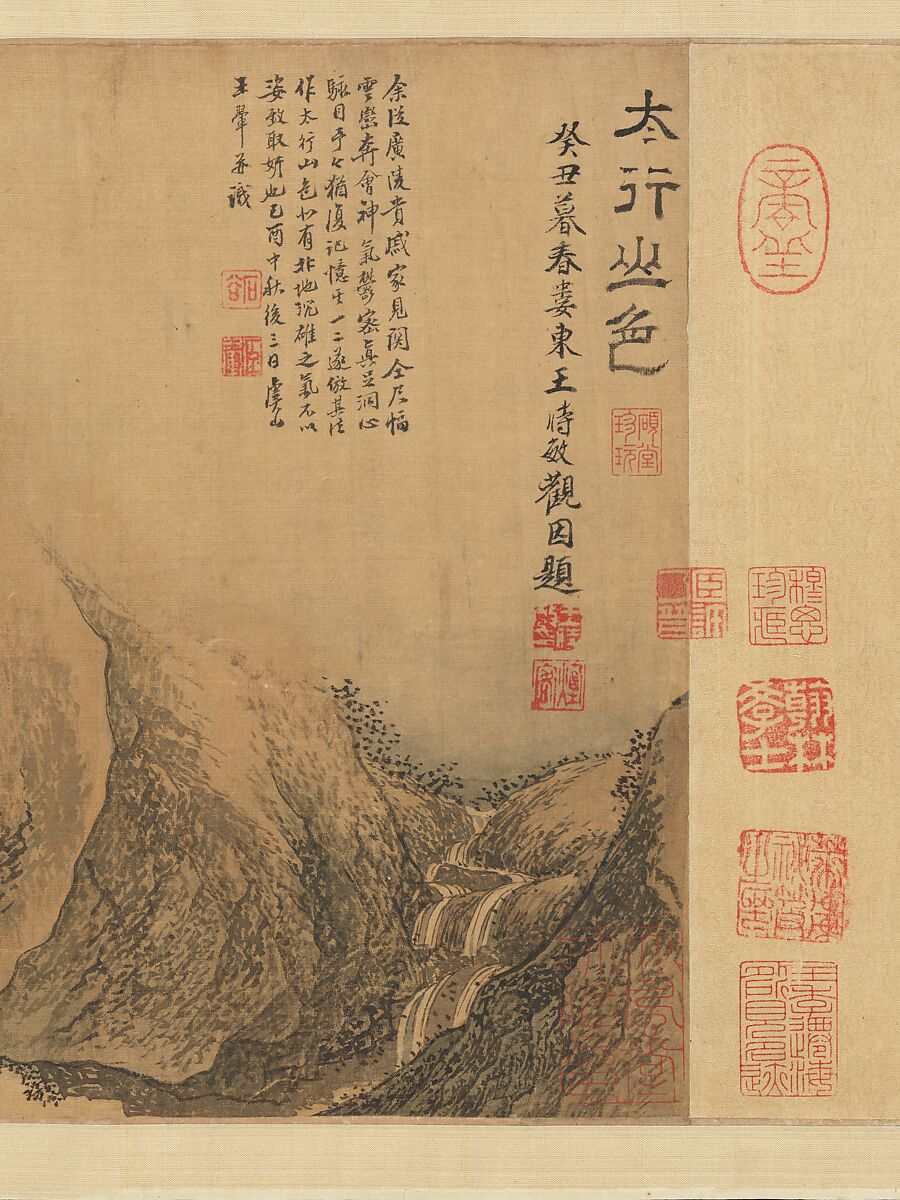 太行山色
癸丑暮春婁東王時敏觀因題
余從廣陵貴戚家見關仝尺幅
雲巒奔會神氣鬱密真足洞心
駴目予今猶復記憶其一二遂倣其法
作太行山色似有北地沉雄之氣不以
姿致取妍也己酉中秋後三日虞山
王翬并識
石谷
王季遷海外所見名跡